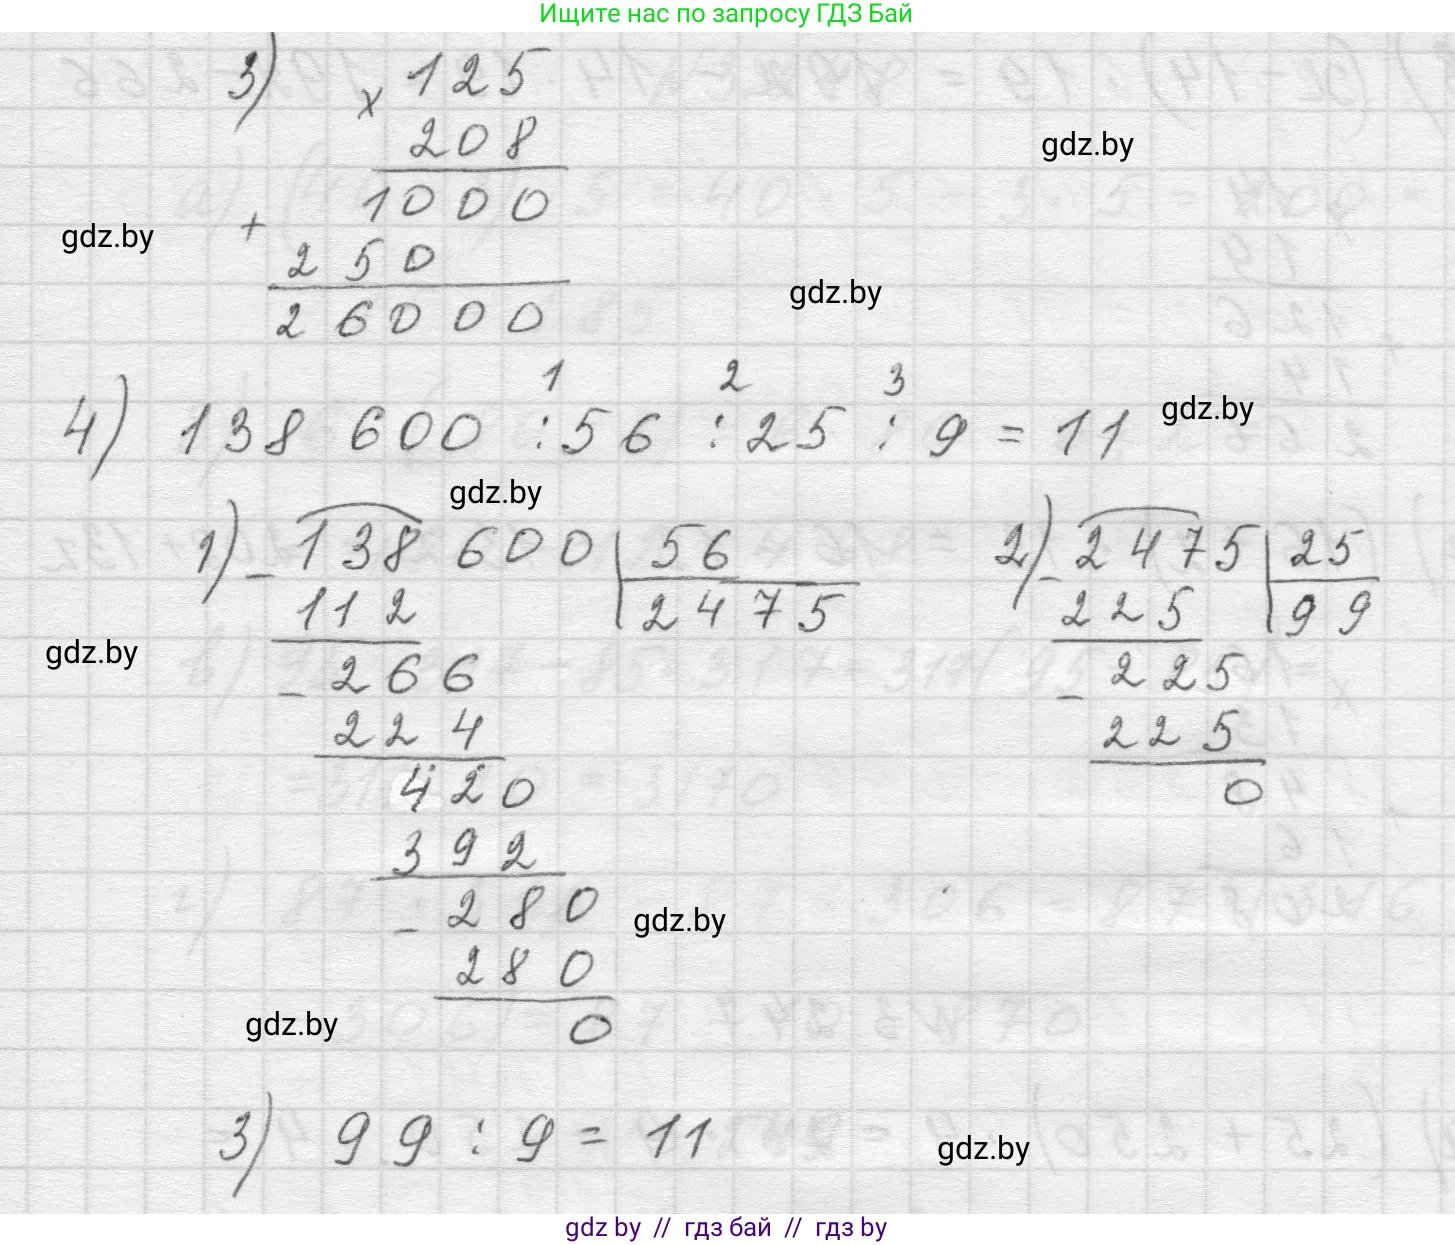 Ищите нас по запросу ГДЗ Бай
3) x 125
208
gdz.by
1000
+
gdz.by
250
gdz.by
26000
1 2 3
4) 138 600 : 56 : 25 : 9 = 11
gdz.by
gdz.by
1) - 138 600 | 56
2) - 2475 | 25
112 2475
225 99
gdz.by
- 266
- 225
224
225
420
0
392
- 280
gdz.by
280
gdz.by
0
3) 99 : 9 = 11
gdz.by
gdz by // гдз бай // гдз by